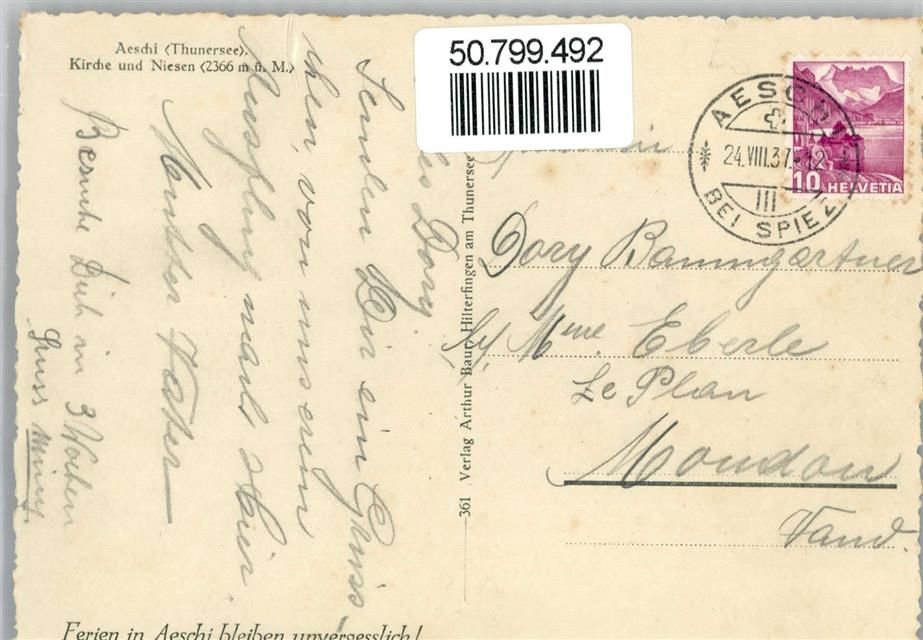 Aeschi (Thunersee).
Kirche und Niesen (2366 m ü. M.)
50.799.492
AESCHI
24.VIII.37.-12
III
BEI SPIEZ
10 HELVETIA
Dory.
Senden Dir ein Gruss
von unserem
Ausflug nach hier
Mutter Vater
Besuche Dich in 3 Wochen
Gruss
361 Verlag Arthur Baur, Hilterfingen am Thunersee
Dory Baumgartner
Mme. Eberle
Le Plan
Moudon
Vaud.
Ferien in Aeschi bleiben unvergesslich!